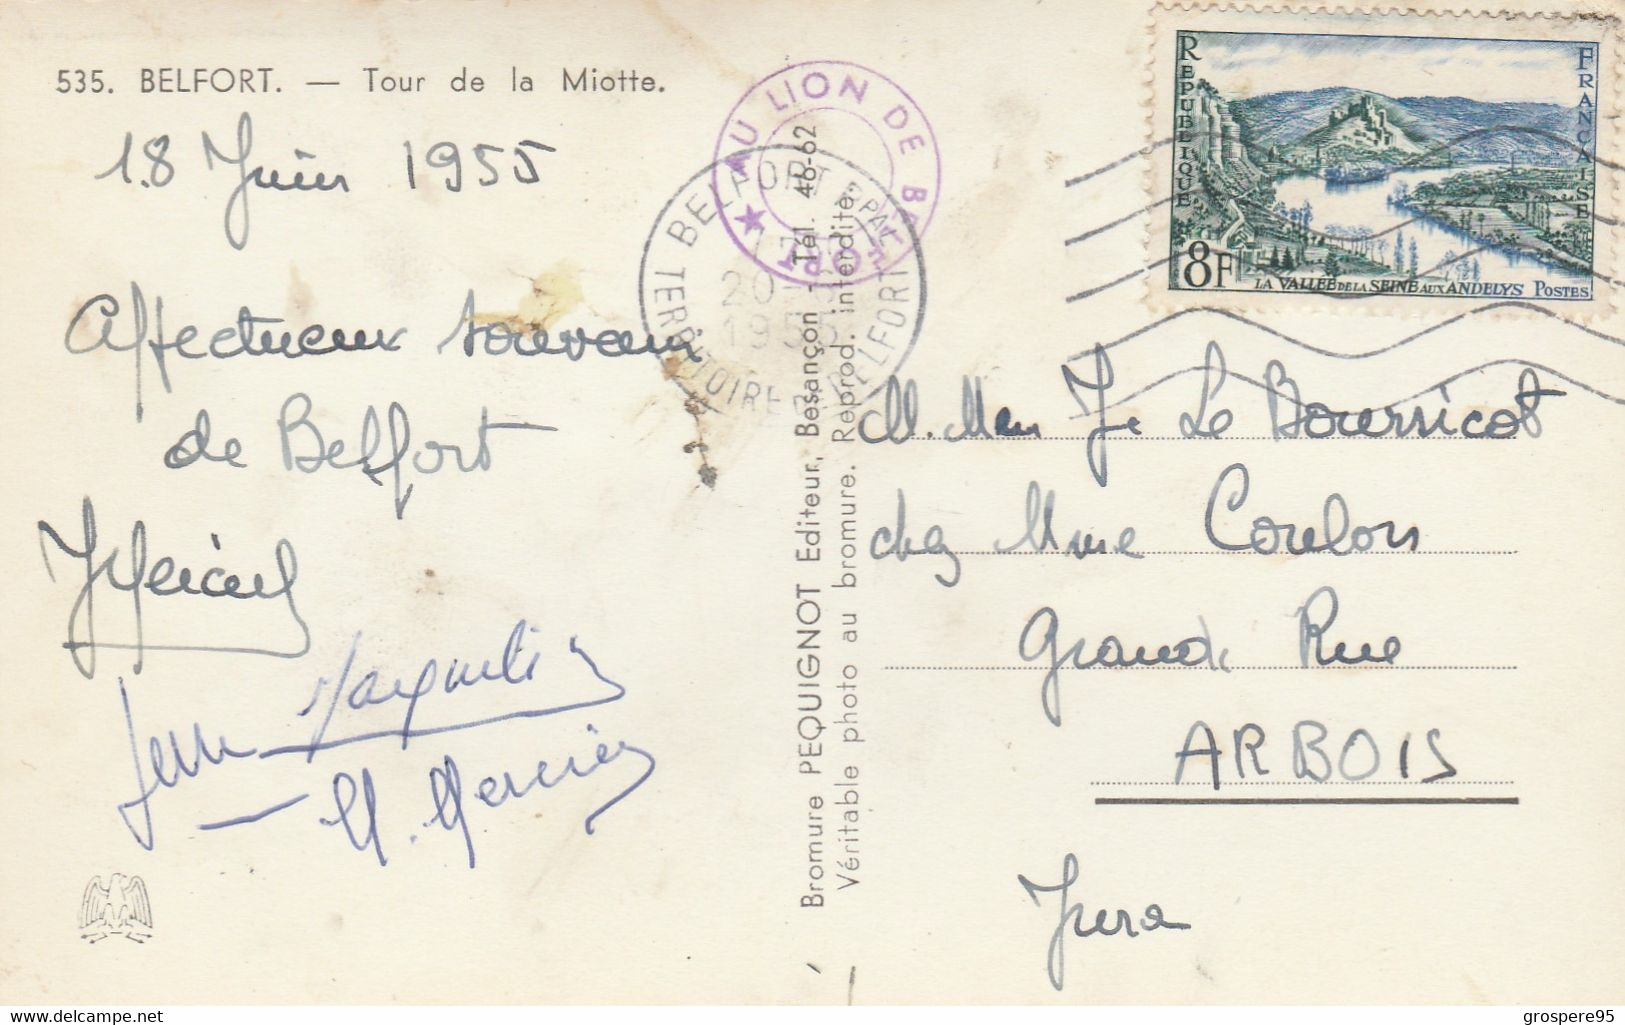 535. BELFORT. — Tour de la Miotte.
18 Juin 1955
Affectueux souvenir
de Belfort
Jacqueline
M. Mercier
AU LION DE BELFORT
BELFORT RPAL
20-6
1955
TERRITOIRE DE BELFORT
Bromure PEQUIGNOT Editeur, Besançon - Tél. 46-62
Véritable photo au bromure. Reprod. interdite.
REPUBLIQUE FRANCAISE
8F
LA VALLEE DE LA SEINE AUX ANDELYS POSTES
M. Mme J. Le Bourricot
chez Mme Coulon
Grande Rue
ARBOIS
Jura
delcampe.net
grospere95